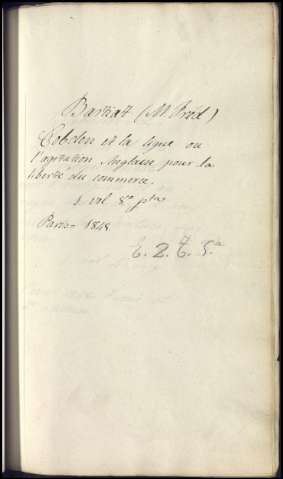 Bastiatt (M. Fred)
Cobden et la ligue ou
l'agitation Anglaise pour la
liberté du commerce.
1 vol 8º pta
Paris 1848
E. 2. T. 5.a